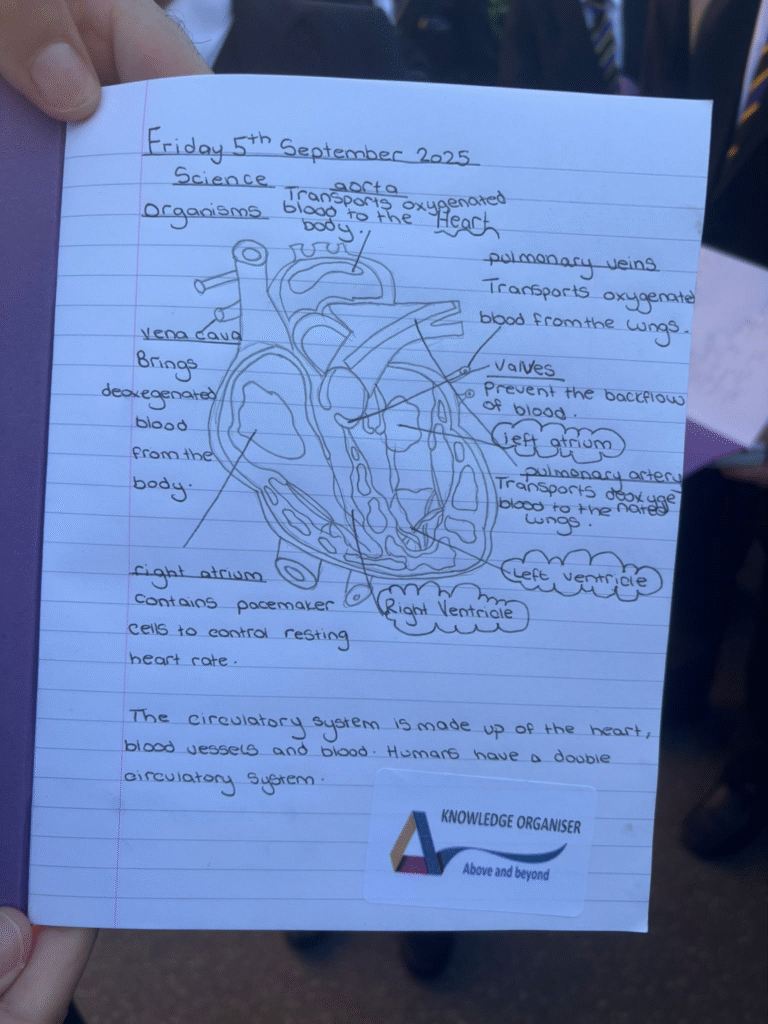 Friday 5th September 2025
Science
Organisms
aorta
Transports oxygenated
blood to the
body.
Heart
pulmonary veins
Transports oxygenated
blood from the lungs.
vena cava
Brings
deoxegenated
blood
from the
body.
valves
Prevent the backflow
of blood.
left atrium
pulmonary artery
Transports deoxyge
nated
blood to the
lungs.
Left ventricle
Right Ventricle
right atrium
contains pacemaker
cells to control resting
heart rate.
The circulatory system is made up of the heart,
blood vessels and blood. Humans have a double
circulatory system.
KNOWLEDGE ORGANISER
Above and beyond